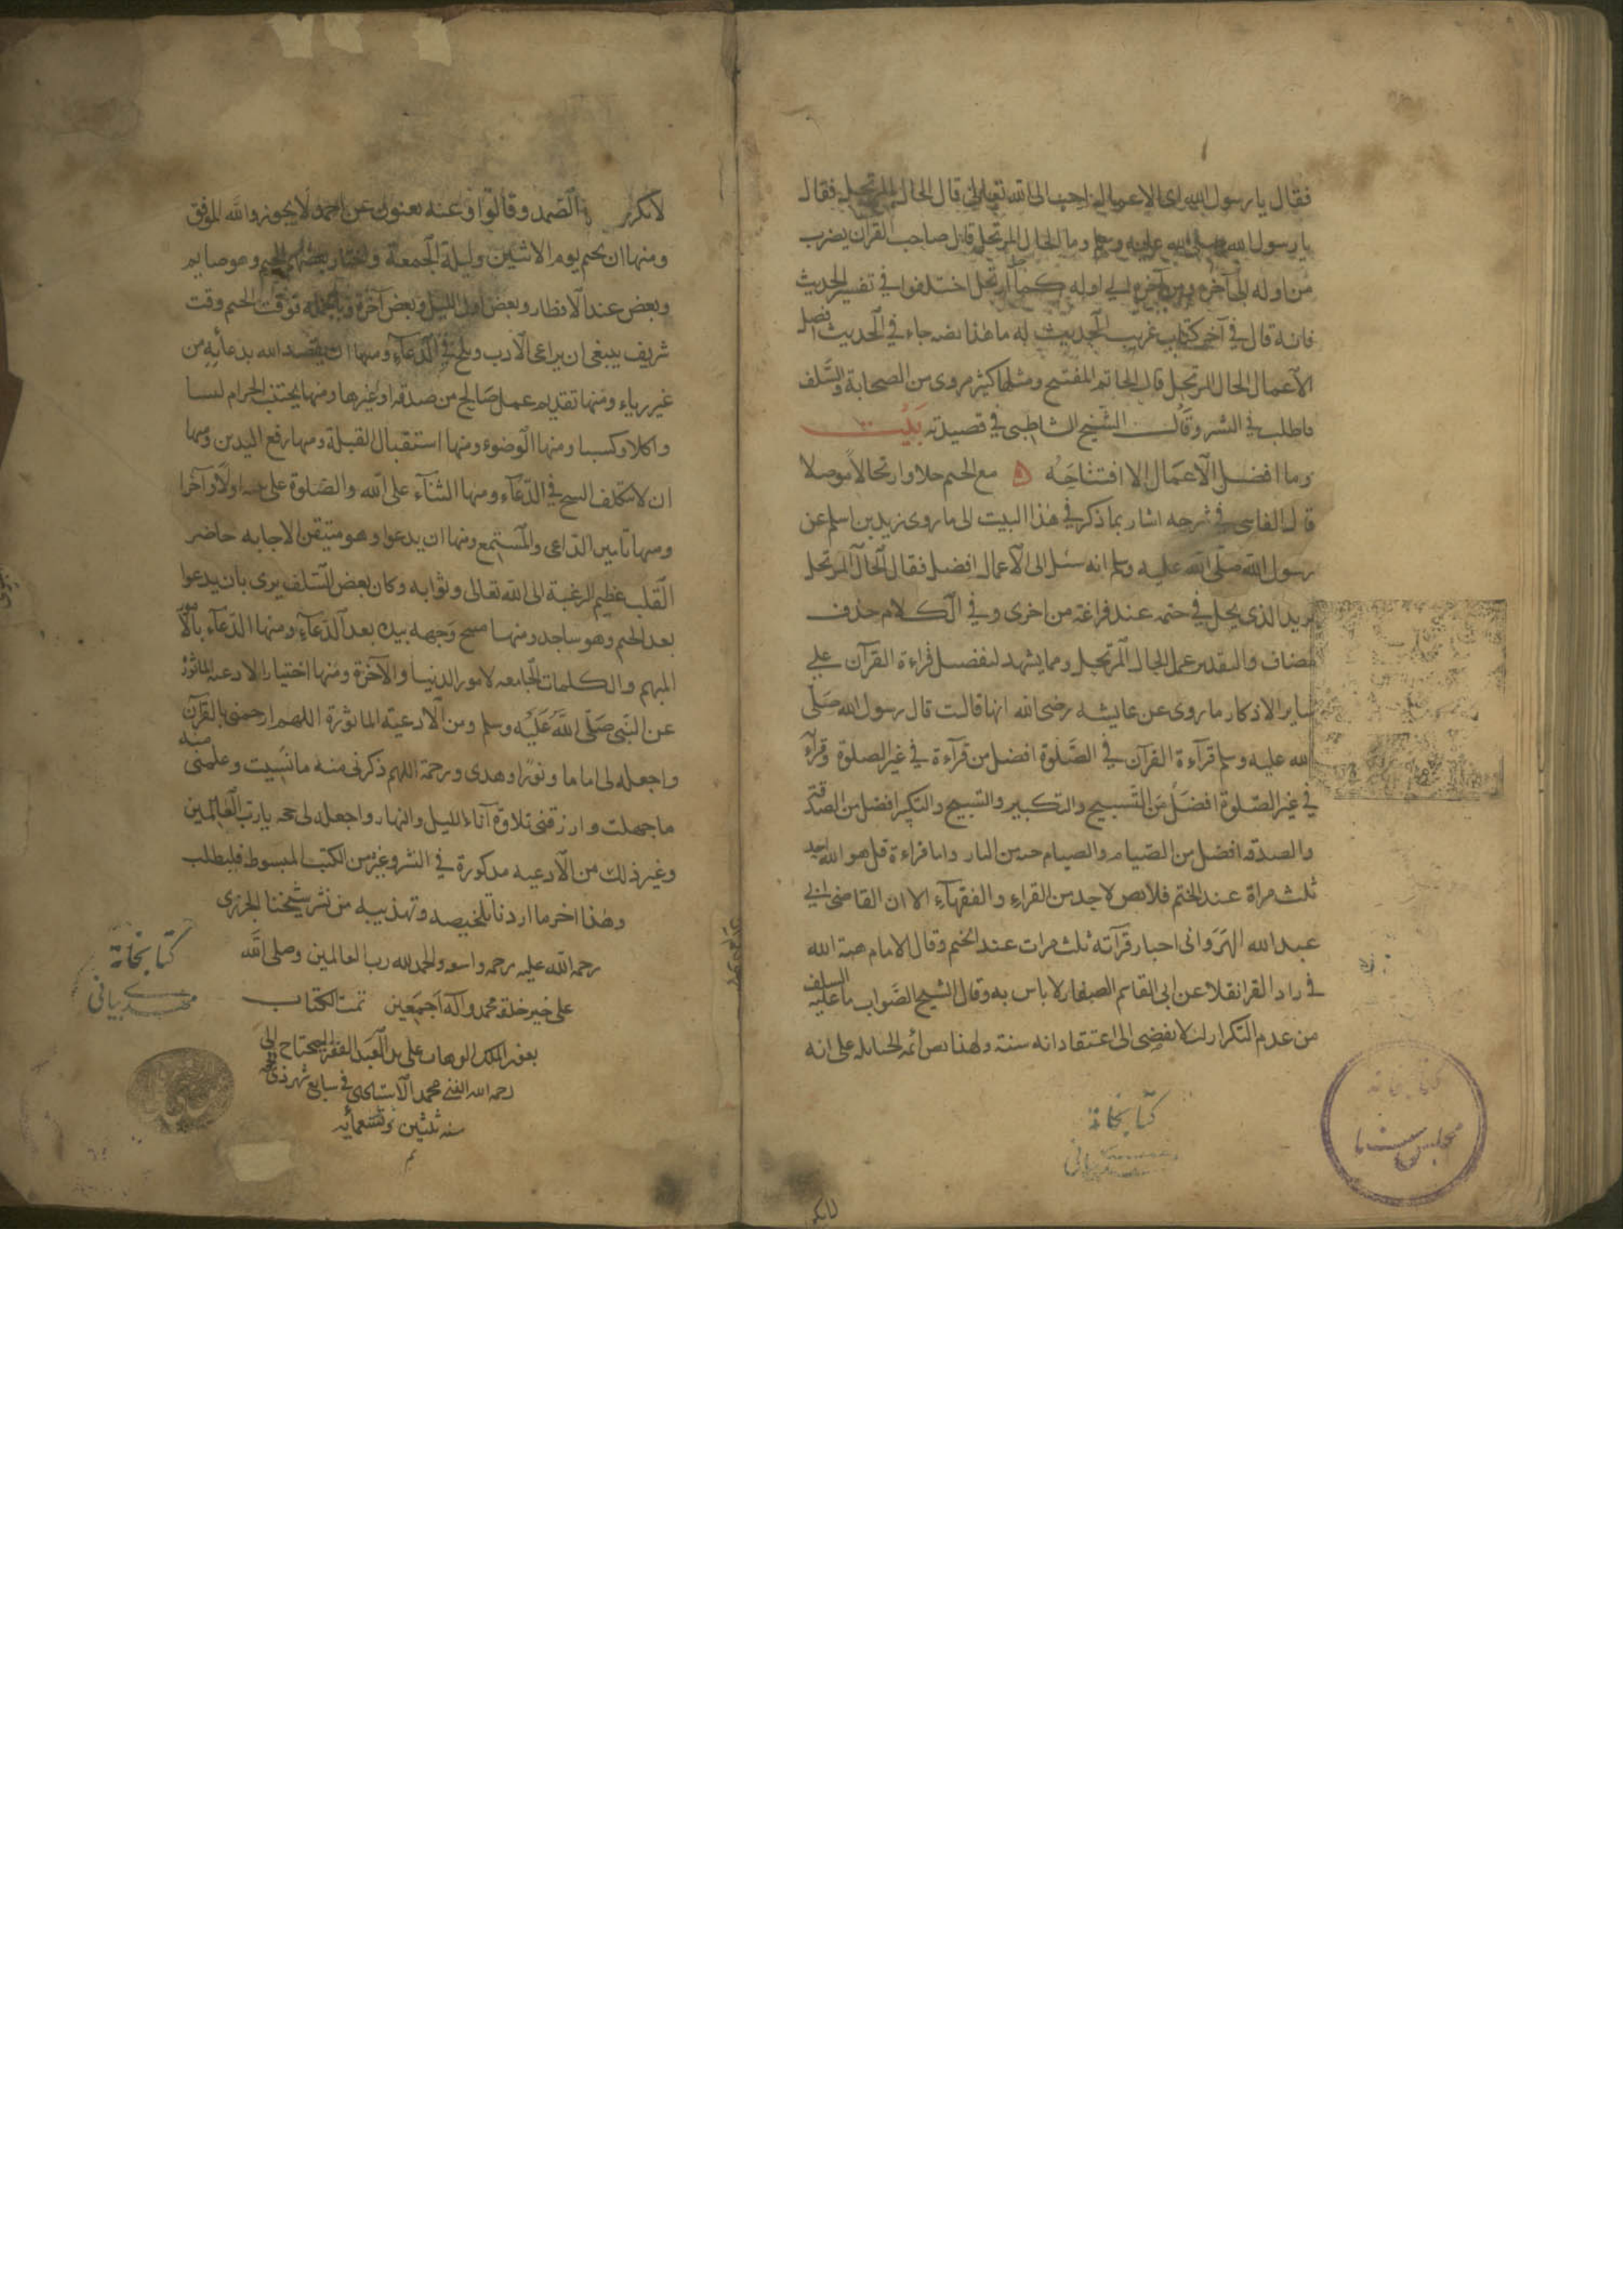 فقال يا رسول الله اى الاعمال احب الى الله تعالى قال الحال المرتحل فقال
يا رسول الله صلى الله عليه وسلم وما الحال المرتحل قال صاحب القرآن يضرب
من اوله الى آخره ومن آخره الى اوله كلما ارتحل اختلفوا في تفسير الحديث
فانه قال في آخر كتاب غريب الحديث له ما هذا نصه جاء في الحديث افضل
الاعمال الحال المرتحل قال الخاتم المفتتح ومثلها كثير مروى من الصحابة والسلف
فاطلب في النشر وقال الشيخ الشاطبى في قصيدته بيت
وما افضل الاعمال الا افتتاحه مع الختم حلا وارتحالا موصلا
قال الفاسى في شرحه اشار بما ذكر في هذا البيت الى ما روى زيد بن اسلم عن
رسول الله صلى الله عليه وسلم انه سئل اى الاعمال افضل فقال الحال المرتحل
يريد الذى يحل في ختمه عند فراغه من اخرى وفي الكلام حذف
مضاف والتقدير عمل الحال المرتحل ومما يشهد لتفضيل قراءة القرآن على
ساير الاذكار ما روى عن عايشه رضى الله انها قالت قال رسول الله صلى
الله عليه وسلم قرآءة القرآن في الصلوة افضل من قرآءة في غير الصلوة وقرآءة
في غير الصلوة افضل من التسبيح والتكبير والتسبيح والتكبير افضل من الصدقة
والصدقه افضل من الصيام والصيام جنة من النار واما قراءة قل هو الله احد
ثلث مراة عند الختم فلا نص لاحد من القراء والفقهاء الا ان القاضى ابى
عبد الله الهروانى اختار قرآته ثلث مرات عند الختم وقال الامام هبة الله
في زاد القرا نقلا عن ابى القاسم الصفار لا باس به وقال الشيخ الصواب ما عليه السلف
من عدم التكرار لئلا يفضى الى اعتقاد انه سنة ولهذا نص ائمه الحنابله على انه
كتابخانه
مهدى بيانى
كتابخانه
مجلس سنا
لا تكرر
لا تكرر الصمد وقالوا وعنه يعنون عن احمد لا يجوز والله الموفق
ومنها ان يختم يوم الاثنين وليلة الجمعة واختار بعضهم الختم وهو صايم
وبعض عند الافطار وبعض اول الليل وبعض آخره وبالجمله توقت الختم وقت
شريف ينبغى ان يراعى الادب ويلح في الدعاء ومنها ان يقصد الله بدعائه من
غير رياء ومنها تقديم عمل صالح من صدقة او غيرها ومنها يجتنب الحرام لبسا
واكلا وكسبا ومنها الوضوء ومنها استقبال القبلة ومنها رفع اليدين ومنها
ان لا يتكلف السجع في الدعاء ومنها الثناء على الله والصلوة على نبيه اولا وآخرا
ومنها تأمين الداعى والمستمع ومنها ان يدعوا وهو متيقن الاجابه حاضر
القلب عظيم الرغبة الى الله تعالى وثوابه وكان بعض السلف يرى بان يدعوا
بعد الختم وهو ساجد ومنها مسح وجهه بيديه بعد الدعاء ومنها الدعاء بالامور
المبهم والكلمات الجامعه لامور الدنيا والآخرة ومنها اختيار الادعية الماثورة
عن النبى صلى الله عليه وسلم ومن الادعيه الماثورة اللهم ارحمنى بالقرآن
واجعله لى اماما ونورا وهدى ورحمة اللهم ذكرنى منه ما نسيت وعلمنى منه
ما جهلت وارزقنى تلاوة آناء الليل والنهار واجعله لى حجه يا رب العالمين
وغير ذلك من الادعيه مذكورة في النشر وغيره من الكتب المبسوط فليطلب
وهذا اخر ما اردنا تلخيصه وتهذيبه من نشر شيخنا الجزرى
رحمه الله عليه رحمه واسعه والحمد لله رب العالمين وصلى الله
على خير خلقه محمد وآله اجمعين تمت الكتاب
بعون الملك الوهاب على يد العبد الفقير المحتاج الى
رحمه الله الغنى محمد في سابع شهر ذى
سنه ثلثين وتسعمايه
م
كتابخانه
مهدى بيانى